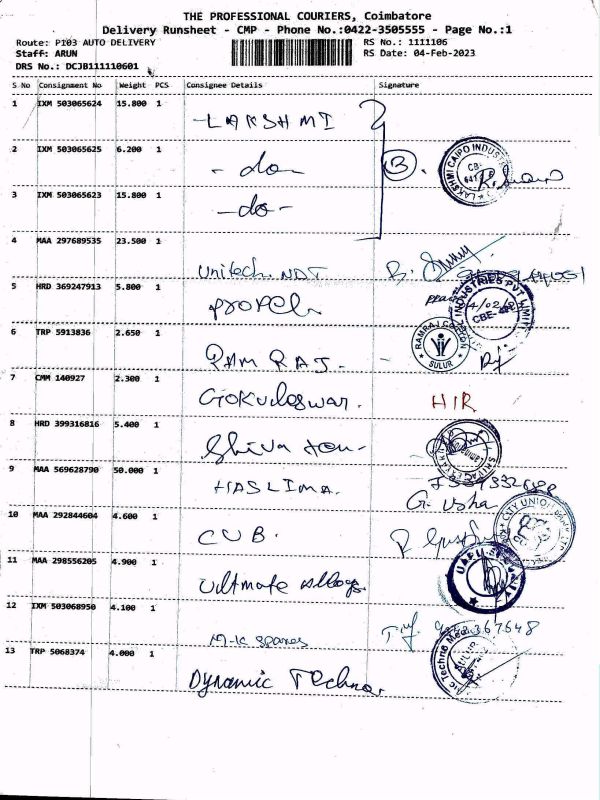 THE PROFESSIONAL COURIERS, Coimbatore
Delivery Runsheet - CMP - Phone No.:0422-3505555 - Page No.:1
Route: P103 AUTO DELIVERY
RS No.: 1111106
Staff: ARUN
RS Date: 04-Feb-2023
DRS No.: DCJB111110601
S No Consignment No Weight PCS Consignee Details Signature
1 IXM 503065624 15.800 1 LAKSHMI
2 IXM 503065625 6.200 1 -do-
3 IXM 503065623 15.800 1 -do-
3.
LAKSHMI CAIPO INDUSTR
4 MAA 297689535 23.500 1 Unitech NDT
5 HRD 369247913 5.800 1 Propel
INDUSTRIES PVT LIMIT
CBE-
6 TRP 5913836 2.650 1 RAM RAJ.
RAMRAJ COTTON
SULUR
7 CMM 140927 2.300 1 Gokuleswar. HIR
8 HRD 399316816 5.400 1 Shiva
9 MAA 569628790 50.000 1 HASLIMA. G. Usha
10 MAA 292844604 4.600 1 CUB.
CITY UNION
11 MAA 298556205 4.900 1 Ultimate Alloys
12 IXM 503068950 4.100 1 M-K spares
13 TRP 5068374 4.000 1 Dynamic Techno.